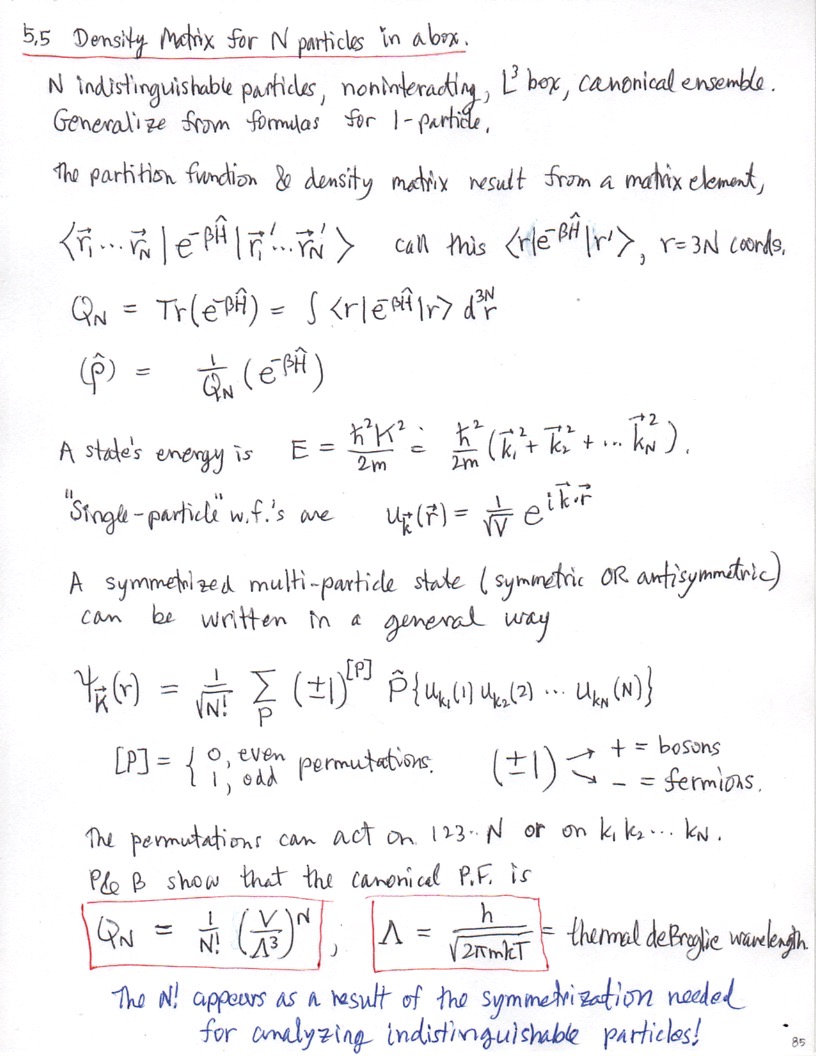 5.5 Density Matrix for N particles in a box.
N indistinguishable particles, noninteracting, L³ box, canonical ensemble.
Generalize from formulas for 1-particle.
The partition function & density matrix result from a matrix element,
⟨r⃗₁...r⃗_N | e^{-βĤ} | r⃗₁'...r⃗_N'⟩ call this ⟨r|e^{-βĤ}|r'⟩, r=3N coords.
Q_N = Tr(e^{-βĤ}) = ∫⟨r|e^{-βĤ}|r⟩ d^{3N}r
(ρ̂) = 1/Q_N (e^{-βĤ})
A state's energy is E = ħ²K²/2m = ħ²/2m (k⃗₁² + k⃗₂² + ... k⃗_N²).
"Single-particle" w.f.'s are u_k⃗(r⃗) = 1/√V e^{ik⃗·r⃗}
A symmetrized multi-particle state (symmetric OR antisymmetric)
can be written in a general way
Ψ_K⃗(r) = 1/√N! Σ_P (±1)^{[P]} P̂{u_{k₁}(1) u_{k₂}(2) ... u_{k_N}(N)}
[P] = { 0, even 1, odd permutations. (±1) → + = bosons → - = fermions.
The permutations can act on 123..N or on k₁ k₂... k_N.
P&B show that the canonical P.F. is
Q_N = 1/N! (V/Λ³)^N ; Λ = h/√2πmkT = thermal deBroglie wavelength
The N! appears as a result of the symmetrization needed
for analyzing indistinguishable particles!
85